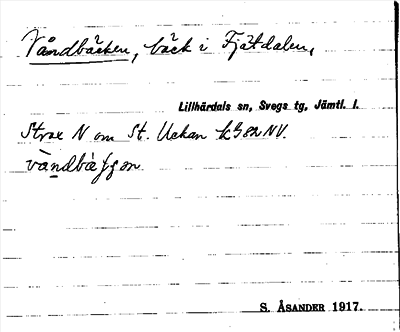 Våndbäcken, bäck i Fjätdalen,
Lillhärdals sn, Svegs tg, Jämtl. l.
Strax N om St. Uckan
våndbä
S. ÅSANDER 1917.